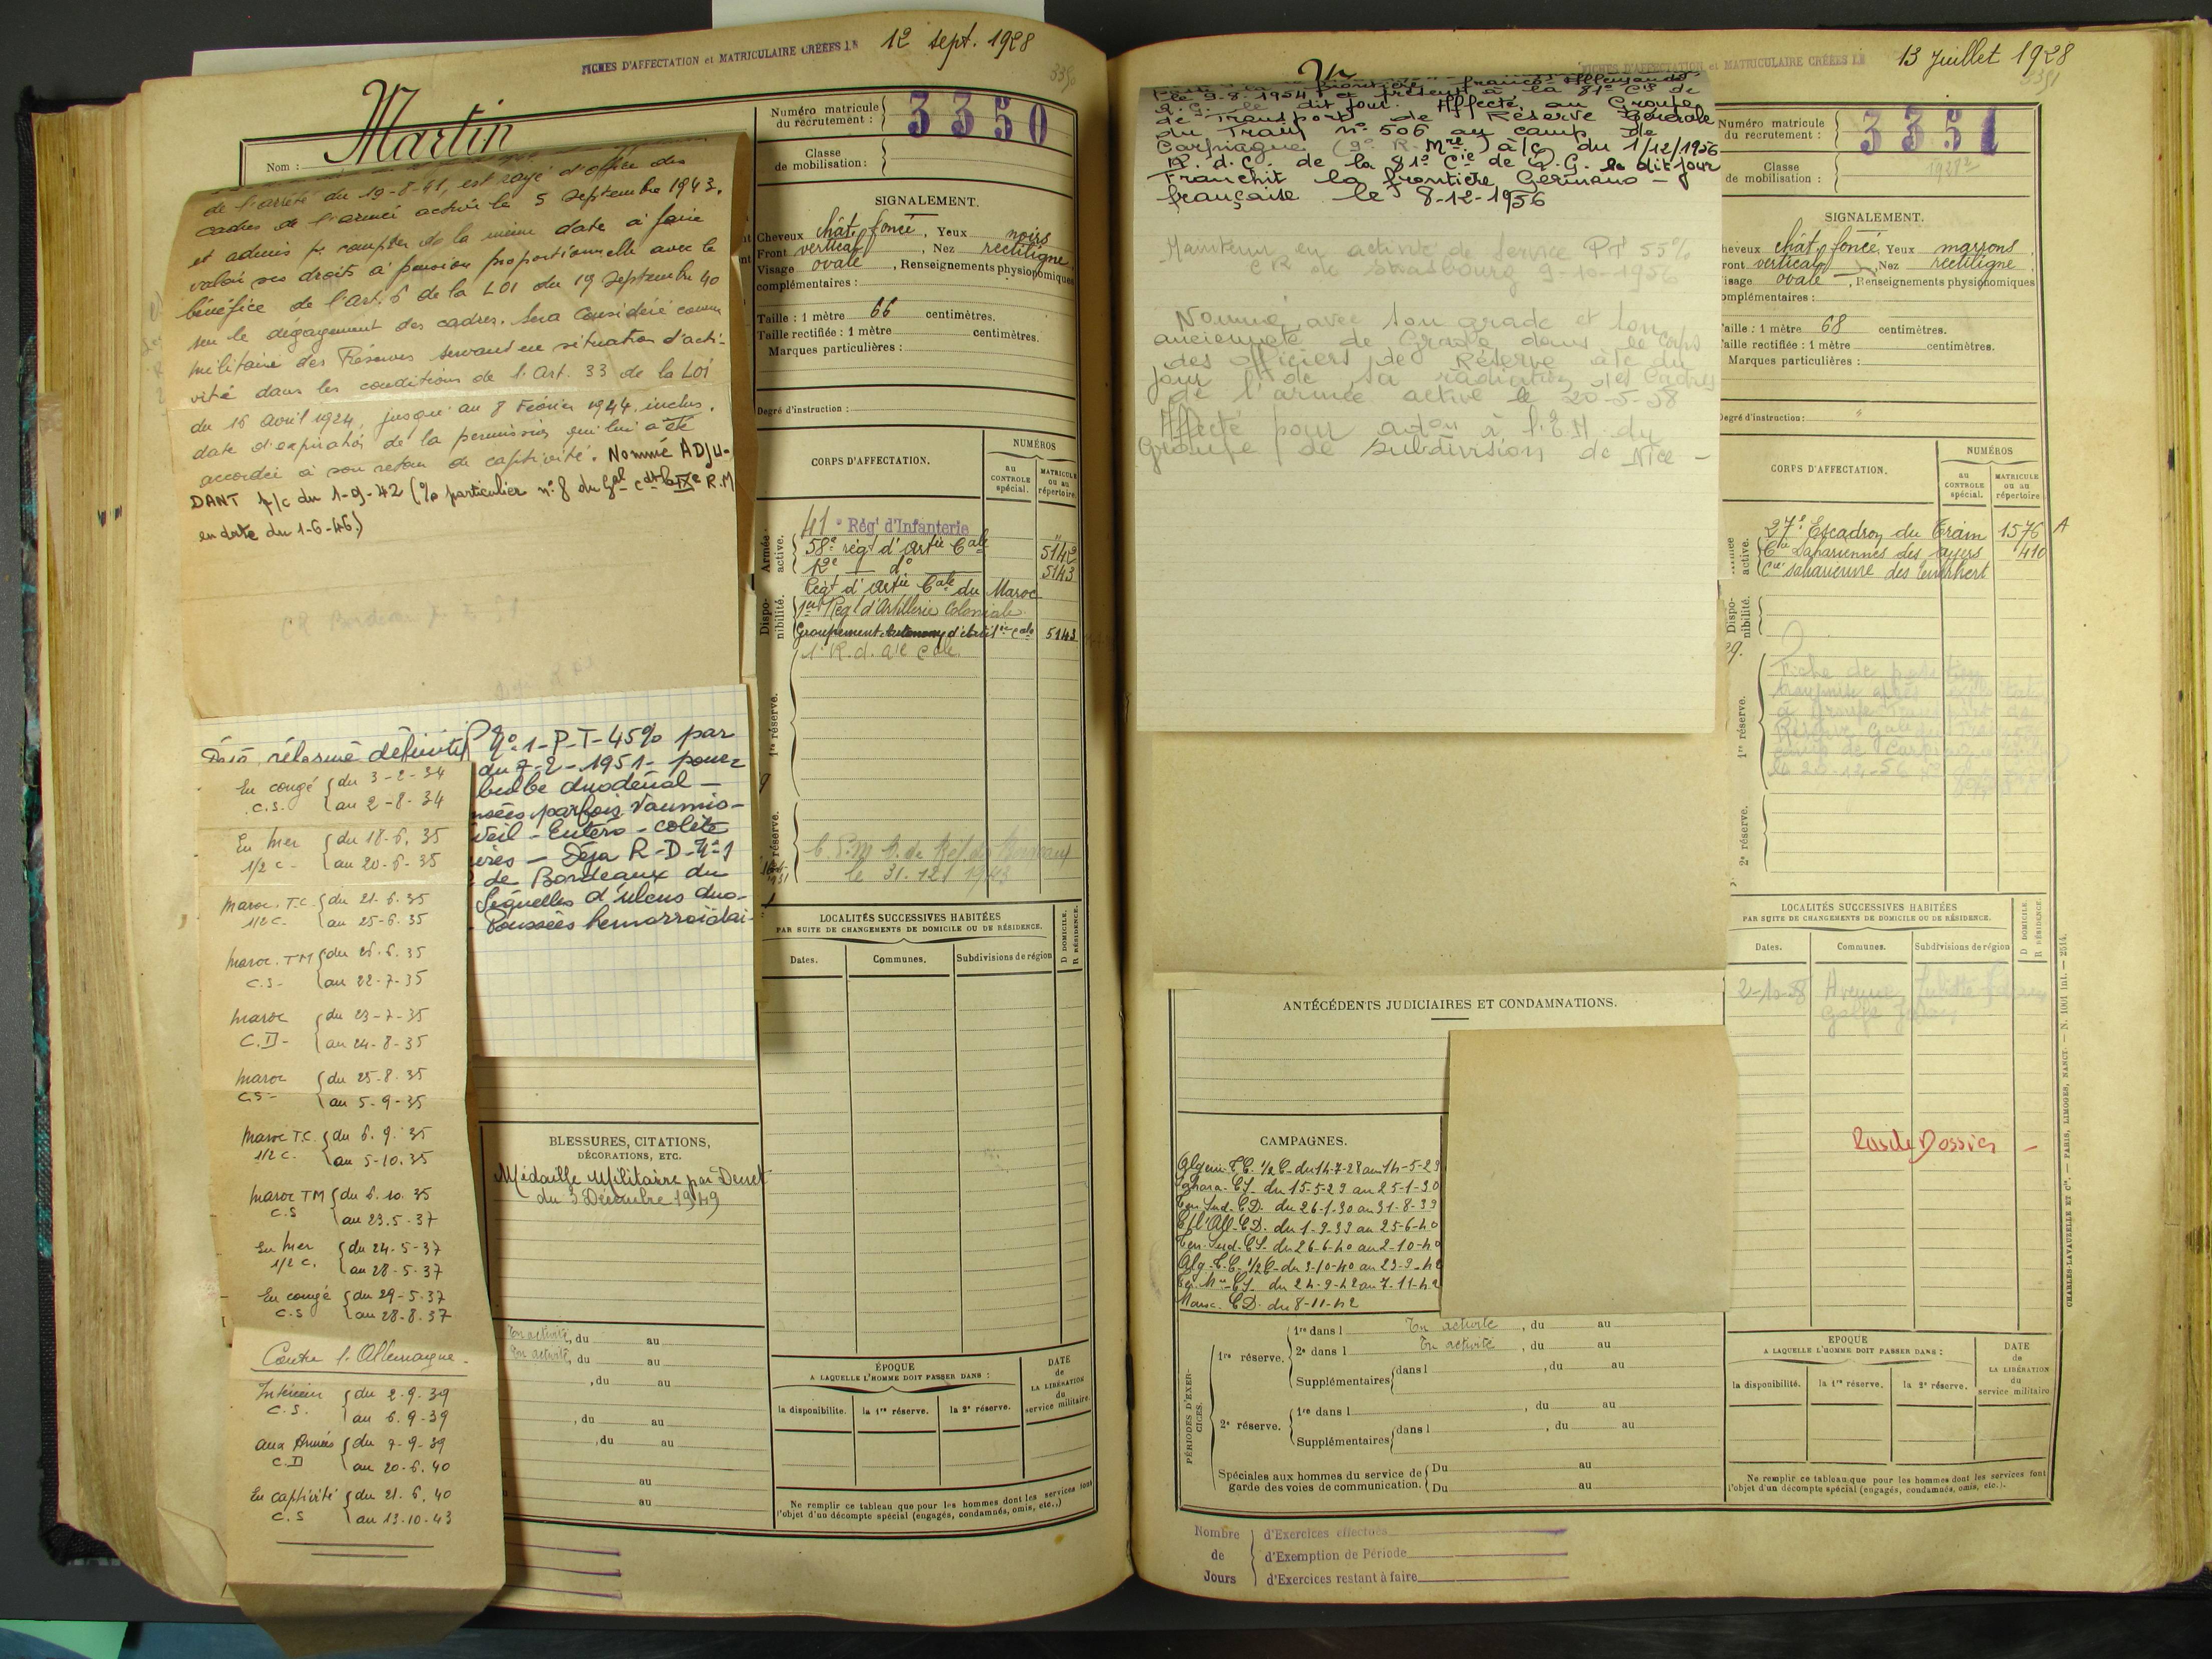 FICHES D'AFFECTATION et MATRICULAIRE CRÉÉES LE 12 sept. 1928
3350
Martin
Nom :
Numéro matricule du recrutement : 3350
Classe de mobilisation :
de l'arrêté du 19-8-41, est rayé d'office des
cadres de l'armée active le 5 Septembre 1943.
et admis p. compter de la même date à faire
valoir ses droits à pension proportionnelle avec le
bénéfice de l'art. 6 de la LOI du 19 Septembre 40
sur le dégagement des cadres. Sera considéré comme
militaire des Réserves servant en situation d'acti-
vité dans les conditions de l'Art. 33 de la LOI
du 16 avril 1924, jusqu'au 8 Février 1944 inclus.
date d'expiration de la permission qui lui a été
accordée à son retour de captivité. Nommé ADJU-
DANT p/c du 1-9-42 (% particulier n° 8 du Gal Cdt la IXe R.M
en date du 1-6-46)
CR Bordeaux
Déjà réformé définitif N° 1-P-T-45% par
du 7-2-1951- pour
bulbe duodénal -
parfois
Entéro-colite
Déja R-D-N°1
de Bordeaux du
Séquelles d'ulcus duo-
Poussées hémorroïdai-
En congé C.S. du 3-2-34 au 2-8-34
En mer 1/2 C- du 18-6-35 au 20-6-35
Maroc. T.C. 1/2 C- du 21-6-35 au 25-6-35
Maroc. TM C.S- du 26-6-35 au 22-7-35
Maroc C.D- du 23-7-35 au 24-8-35
Maroc C.S- du 25-8-35 au 5-9-35
Maroc T.C. 1/2 C- du 6-9-35 au 5-10-35
Maroc TM C.S du 6-10-35 au 23-5-37
En mer 1/2 C. du 24-5-37 au 28-5-37
En congé C.S du 29-5-37 au 28-8-37
Contre l'Allemagne.
Intérieur C.S. du 2-9-39 au 6-9-39
aux Armées C.D du 7-9-39 au 20-6-40
En captivité C.S du 21-6-40 au 13-10-43
SIGNALEMENT.
Cheveux chât. foncé, Yeux noirs
Front vertical, Nez rectiligne
Visage ovale, Renseignements physionomiques
complémentaires :
Taille : 1 mètre 66 centimètres.
Taille rectifiée : 1 mètre centimètres.
Marques particulières :
Degré d'instruction :
CORPS D'AFFECTATION.
NUMÉROS
au CONTROLE spécial.
MATRICULE ou au répertoire.
Armée active.
41e Rég' d'Infanterie
58e régt d'artie Cale 5142
12e d° 5143
Régt d'artie Cale du Maroc
Disponibilité.
1er Régt d'Artillerie Coloniale
Groupement Autonome d'artillie cale 5143
1re réserve.
1er R. d. art. Cale.
2e réserve.
le 31.12 1943
LOCALITÉS SUCCESSIVES HABITÉES
PAR SUITE DE CHANGEMENTS DE DOMICILE OU DE RÉSIDENCE.
D DOMICILE. R RÉSIDENCE.
Dates. Communes. Subdivisions de région
BLESSURES, CITATIONS,
DÉCORATIONS, ETC.
Médaille Militaire par Décret
du 3 Décembre 1949
En activité, du au
En activité, du au
, du au
, du au
, du au
au
au
ÉPOQUE
A LAQUELLE L'HOMME DOIT PASSER DANS :
la disponibilité. la 1re réserve. la 2e réserve.
DATE de LA LIBÉRATION du service militaire.
Ne remplir ce tableau que pour les hommes dont les services font
l'objet d'un décompte spécial (engagés, condamnés, omis, etc..)
FICHES D'AFFECTATION et MATRICULAIRE CRÉÉES LE 13 Juillet 1928
3351
franco-allemande
le 9-8-1954 et présent à la 81e Cie de
Q.G. le dit jour. Affecté au Groupe
de Transport de Réserve Générale
du Train n° 506 au camp de
Carpiagne (9e R. Mre) à/c du 1/12/1956
R. d. C. de la 81e Cie de Q.G. le dit jour
Franchit la frontière Germano-
française le 8-12-1956
Maintenu en activité de Service P.T 55%
CR de Strasbourg 9-10-1956
Nommé avec son grade et son
ancienneté de Grade dans le Corps
des Officiers de Réserve à/c du
jour de sa radiation des Cadres
de l'armée active le 20-5-58
Affecté pour adon à l'E.M. du
Groupe de Subdivision de Nice -
Numéro matricule du recrutement : 3351
Classe de mobilisation : 1928
SIGNALEMENT.
heveux chât. foncé, Yeux marrons
ront vertical, Nez rectiligne
isage ovale, Renseignements physionomiques
omplémentaires :
aille : 1 mètre 68 centimètres.
Taille rectifiée : 1 mètre centimètres.
Marques particulières :
Degré d'instruction :
CORPS D'AFFECTATION.
NUMÉROS
au CONTROLE spécial.
MATRICULE ou au répertoire.
active.
27e Escadron du Train 1576 A
Cie Sahariennes des 410
Cie saharienne des
Disponibilité.
1re réserve.
Fiche de
2e réserve.
LOCALITÉS SUCCESSIVES HABITÉES
PAR SUITE DE CHANGEMENTS DE DOMICILE OU DE RÉSIDENCE.
D DOMICILE. R RÉSIDENCE.
Dates. Communes. Subdivisions de région
2-10-58 Avenue Juliette
Golfe Juan
Dossier -
ANTÉCÉDENTS JUDICIAIRES ET CONDAMNATIONS.
CAMPAGNES.
Algérie T.C. 1/2 C. du 14-7-28 au 14-5-29
Sahara. CS. du 15-5-29 au 25-1-30
Ter. Sud. CD. du 26-1-30 au 31-8-39
C/ l'All. CD. du 1-9-39 au 25-6-40
Ter. Sud. CS. du 26-6-40 au 2-10-40
Alg. T.C. 1/2 C. du 3-10-40 au 23-9-42
CS. du 24-9-42 au 7-11-42
Maroc. CD. du 8-11-42
PÉRIODES D'EXERCICES.
1re réserve.
1re dans l En activité, du au
2e dans l En activité, du au
Supplémentaires dans l , du au
2e réserve.
1re dans l , du au
Supplémentaires dans l , du au
Spéciales aux hommes du service de garde des voies de communication.
Du au
Du au
EPOQUE
A LAQUELLE L'HOMME DOIT PASSER DANS :
la disponibilité. la 1re réserve. la 2e réserve.
DATE de LA LIBÉRATION du service militaire
Ne remplir ce tableau que pour les hommes dont les services font
l'objet d'un décompte spécial (engagés, condamnés, omis, etc.).
CHARLES-LAVAUZELLE ET Cie. — PARIS, LIMOGES, NANCY. — N. 1001 int. — 2514.
Nombre de Jours
d'Exercices effectués
d'Exemption de Période
d'Exercices restant à faire